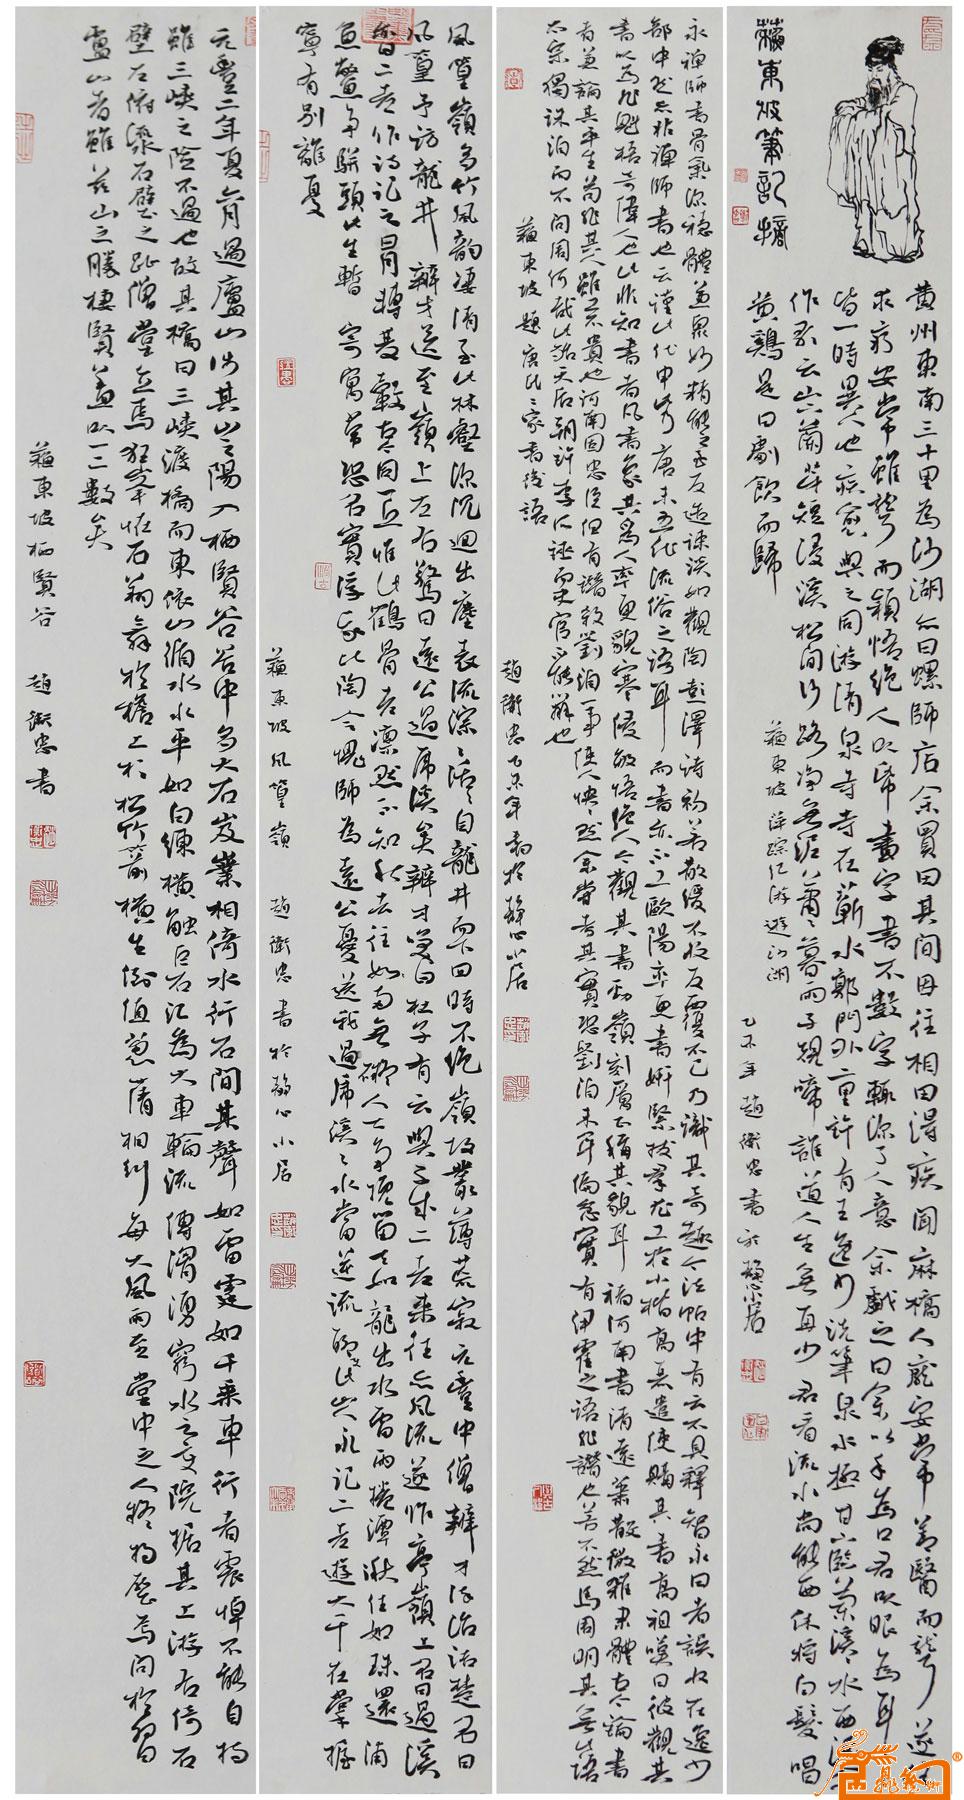 蘇東坡筆記摘
黃州東南三十里為沙湖亦曰螺師店余買田其間因往相田得疾聞麻橋人龐安常善醫而聾遂往
求療安常雖聾而穎悟絕人以紙畫字書不數字輒深了人意余戲之曰余以手為口君以眼為耳
皆一時異人也疾愈與之同游清泉寺寺在蘄水郭門外二里許有王逸少洗筆泉水極甘下臨蘭溪水西流
作歌云山下蘭芽短浸溪松間沙路淨無泥蕭蕭暮雨子規啼誰道人生無再少君看流水尚能西休將白髮唱
黃鷄是日劇飲而歸
蘇東坡 遊沙湖
乙未年趙衛忠書於靜心小居
永禪師書骨氣深穩體兼眾妙精能之至反造疎淡如觀陶彭澤詩初若散緩不收反覆不已乃識其奇趣今法帖中有云不具釋智永白者誤收在逸少
部中然亦非禪師書也云謹此代申此乃唐末五代流俗之語耳而書亦不工歐陽率更書妍緊拔羣尤工於小楷高麗遣使購其書高祖嘆曰彼觀其
書以為魁梧奇偉人也此非知書者凡書象其為人率更貌寒侵敏悟絕人今觀其書勁嶮刻厲正稱其貌耳褚河南書清遠蕭散微雜隸體古今論書
者兼論其平生苟非其人雖工不貴也河南固忠臣但有譖殺劉洎一事使人怏怏然余嘗考其實恐劉洎末年偏忿實有伊霍之語非譖也若不然馬周明其無此語
太宗獨誅洎而不問周何哉此殆天后朝許李所誣而史官不能辨也
蘇東坡題唐氏六家書後語
趙衛忠乙未年書於靜心小居
風篁嶺多竹風韵淒清至此林壑深沉迥出塵表流淙活活自龍井而下四時不絕嶺故叢薄荒寂元豐中僧辯才淬治潔楚名曰
風篁予訪龍井辯才送至嶺上左右驚曰遠公過虎溪矣辯才笑曰杜子有云與子成二老來往亦風流遂作亭嶺上名曰過溪
亦曰二老作詩記之日月轉雙轂古今同一丘惟此鶴骨老凜然不知秋去住兩無礙人天爭挽留去如龍出水雷雨捲潭湫住如珠還浦
魚鱉爭駢頭此生暫寄寓常恐名實浮我比陶令愧師為遠公憂送我過虎溪溪水當逆流聊此共永記二老遊大千在掌握
寧有別離憂
蘇東坡風篁嶺
趙衛忠書於靜心小居
元豐二年夏六月過廬山 其山之陽入栖賢谷谷中多大石岌嶪相倚水行石間其聲如雷霆如千乘車行者震悼不能自持
雖三峽之險不過也故其橋曰三峽渡橋而東依山循水水平如白練橫觸巨石汇為大車輪流轉洶湧窮水之變院据其上游右倚石
壁左俯流水石壁之趾僧堂立焉狂峯怪石翔舞於檐上杉松竹箭橫生倒植蔥蒨相糾每大風雨至堂中之人疑將壓焉問於習
廬山者雖茲山之勝棲賢蓋以一二數矣
蘇東坡栖賢谷
趙衛忠書